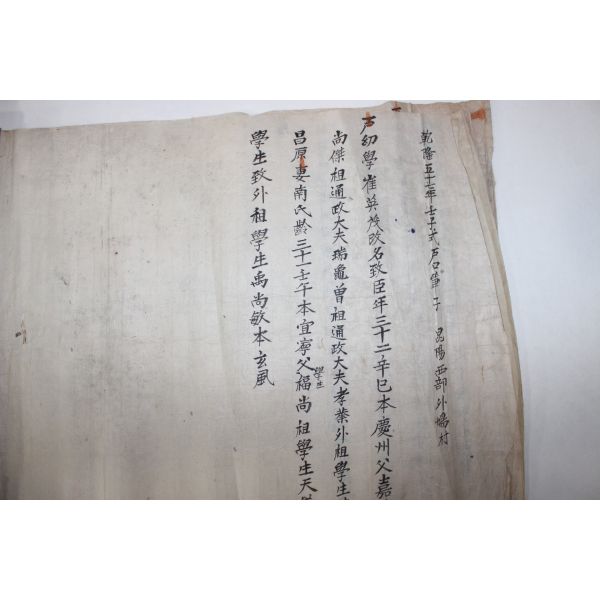 乾隆五十七年壬子式戶口單子 昆陽西部外場村
戶幼學崔英茂改名致臣年三十二辛巳本慶州父嘉
尚傑祖通政大夫瑞龜曾祖通政大夫孝業外祖學生
昌原妻南氏齡三十一壬午本宜寧父學生福尚祖學生天
學生致外祖學生禹尚敏本玄風